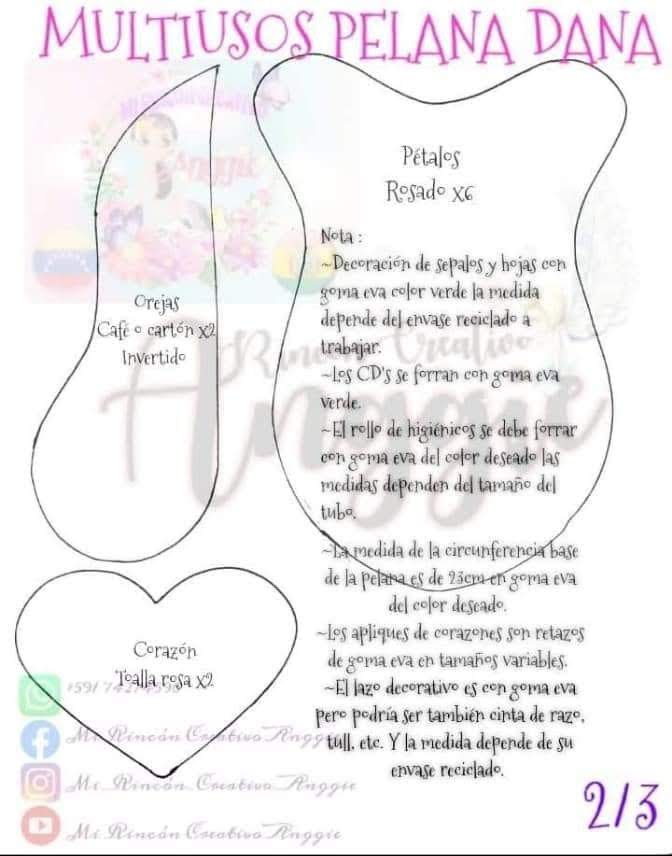 MULTIUSOS PELANA DANA
Anggie
Pétalos
Rosado x6
Nota :
~Decoración de sepalos y hojas con
goma eva color verde la medida
depende del envase reciclado a
trabajar.
~Los CD's se forran con goma eva
verde.
~El rollo de higiénicos se debe forrar
con goma eva del color deseado las
medidas dependen del tamaño del
tubo.
~La medida de la circunferencia base
de la pelana es de 23cm en goma eva
del color deseado.
~Los apliques de corazones son retazos
de goma eva en tamaños variables.
~El lazo decorativo es con goma eva
pero podría ser también cinta de razo,
tull, etc. Y la medida depende de su
envase reciclado.
Orejas
Café o cartón x2
Invertido
Rincón Creativo
Anggie
Corazón
Toalla rosa x2
Mi Rincón Creativo Anggie
Mi Rincón Creativo Anggie
Mi Rincón Creativo Anggie
2/3